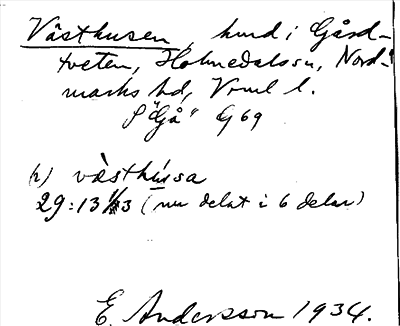 Västhusen, hmd i Gård-
tveten, Holmedals sn, Nord-
marks hd, Vrml l.
S "Gjå" G 69
(r) vä̀sthúsa
29:13 1/33 (nu delat i 6 delar)
E. Andersson 1934.